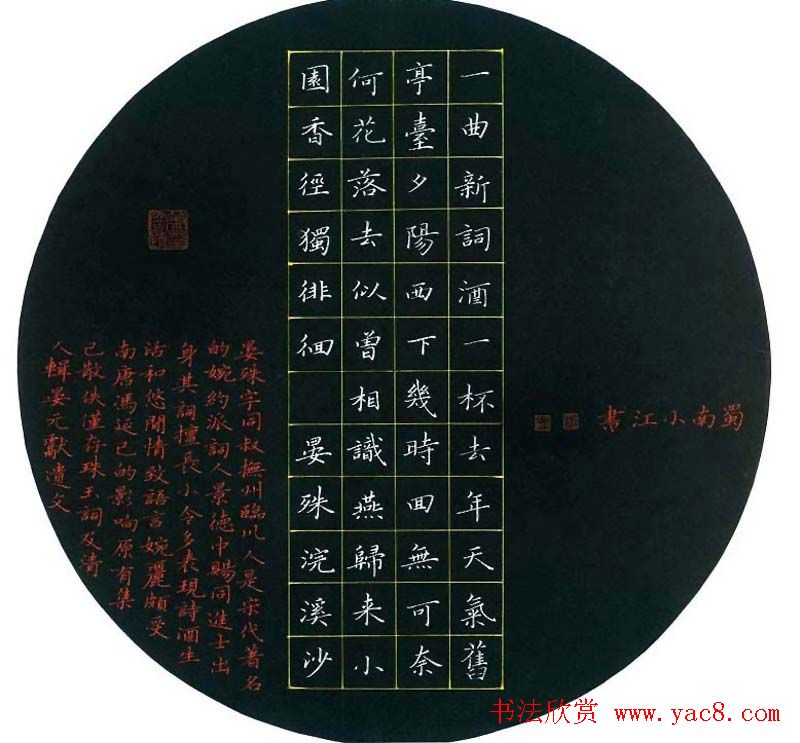 蜀南小江書
一曲新詞酒一杯去年天氣舊
亭臺夕陽西下幾時回無可奈
何花落去似曾相識燕歸来小
園香徑獨徘徊 晏殊浣溪沙
晏殊字同叔撫州臨川人是宋代著名
的婉約派詞人景德中賜同進士出
身其詞擅長小令多表現詩酒生
活和悠閒情致語言婉麗頗受
南唐馮延已的影响原有集
已散佚僅存珠玉詞及清
人輯晏元獻遺文
书法欣赏 www.yac8.com